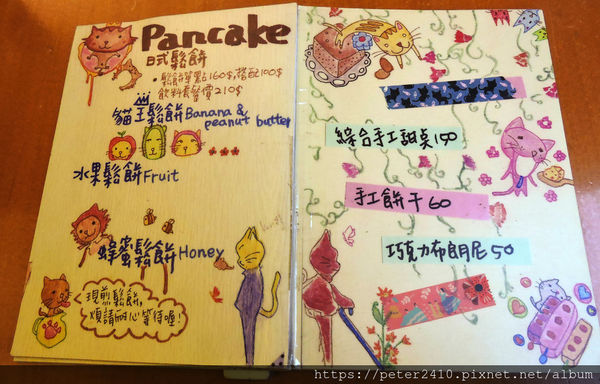 Pancake
日式鬆餅
・鬆餅單點160$,搭配100$
飲料套餐價210$
貓王鬆餅Banana &
peanut butter
水果鬆餅Fruit
蜂蜜鬆餅Honey
現煎鬆餅,
煩請耐心等待喔!
綜合手工甜點150
手工餅干60
巧克力布朗尼50
https://peter2410.pixnet.net/album